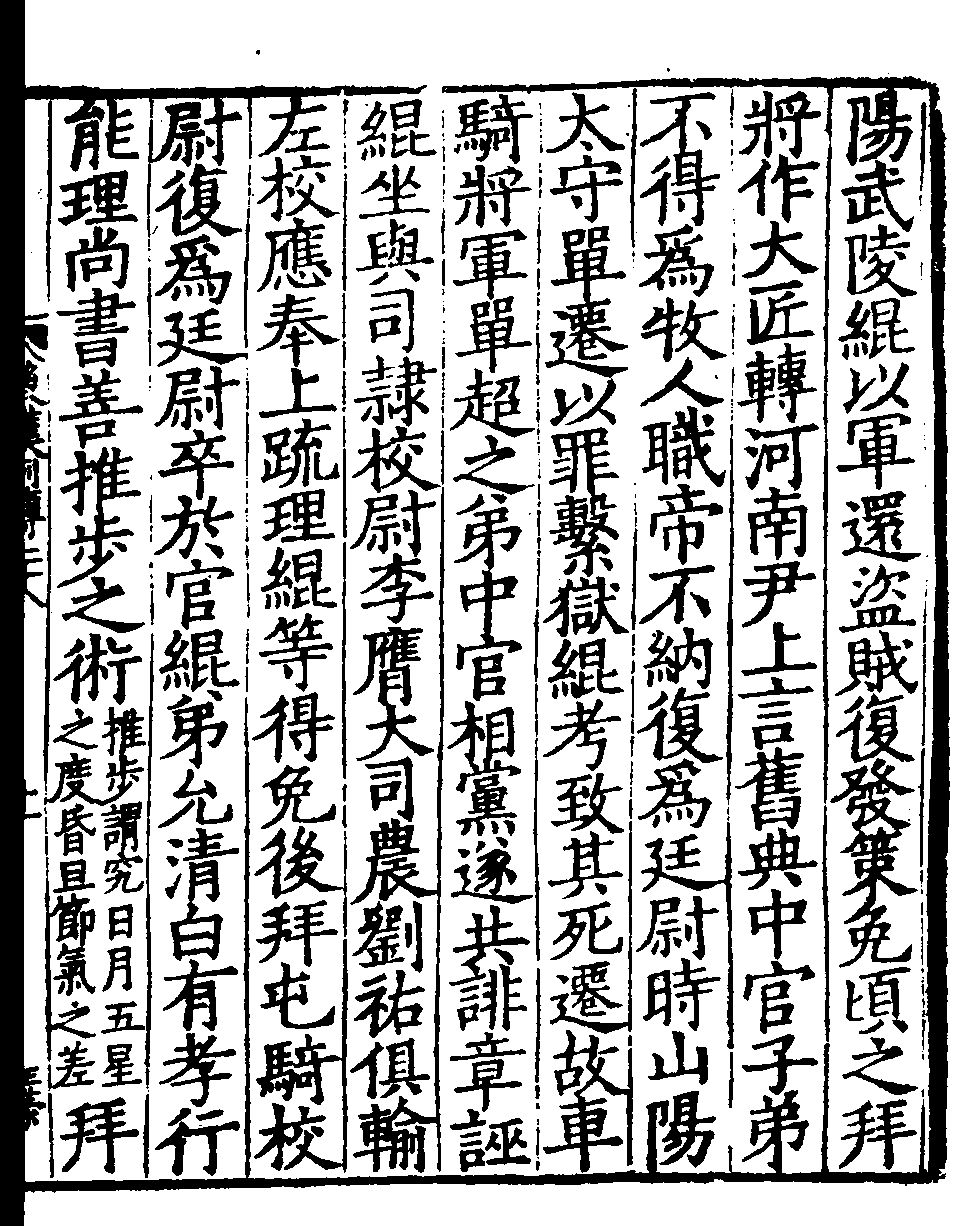 陽武陵緄以軍還盜賊復發策免頃之拜
將作大匠轉河南尹上言舊典中官子弟
不得爲牧人職帝不納復爲廷尉時山陽
太守單遷以罪繫獄緄考致其死遷故車
騎將軍單超之弟中官相黨遂共誹章誣
緄坐與司隸校尉李膺大司農劉祐俱輸
左校應奉上疏理緄等得免後拜屯騎校
尉復爲廷尉卒於官緄弟允清白有孝行
能理尚書善推步之術推步謂究日月五星之度昏旦節氣之差拜